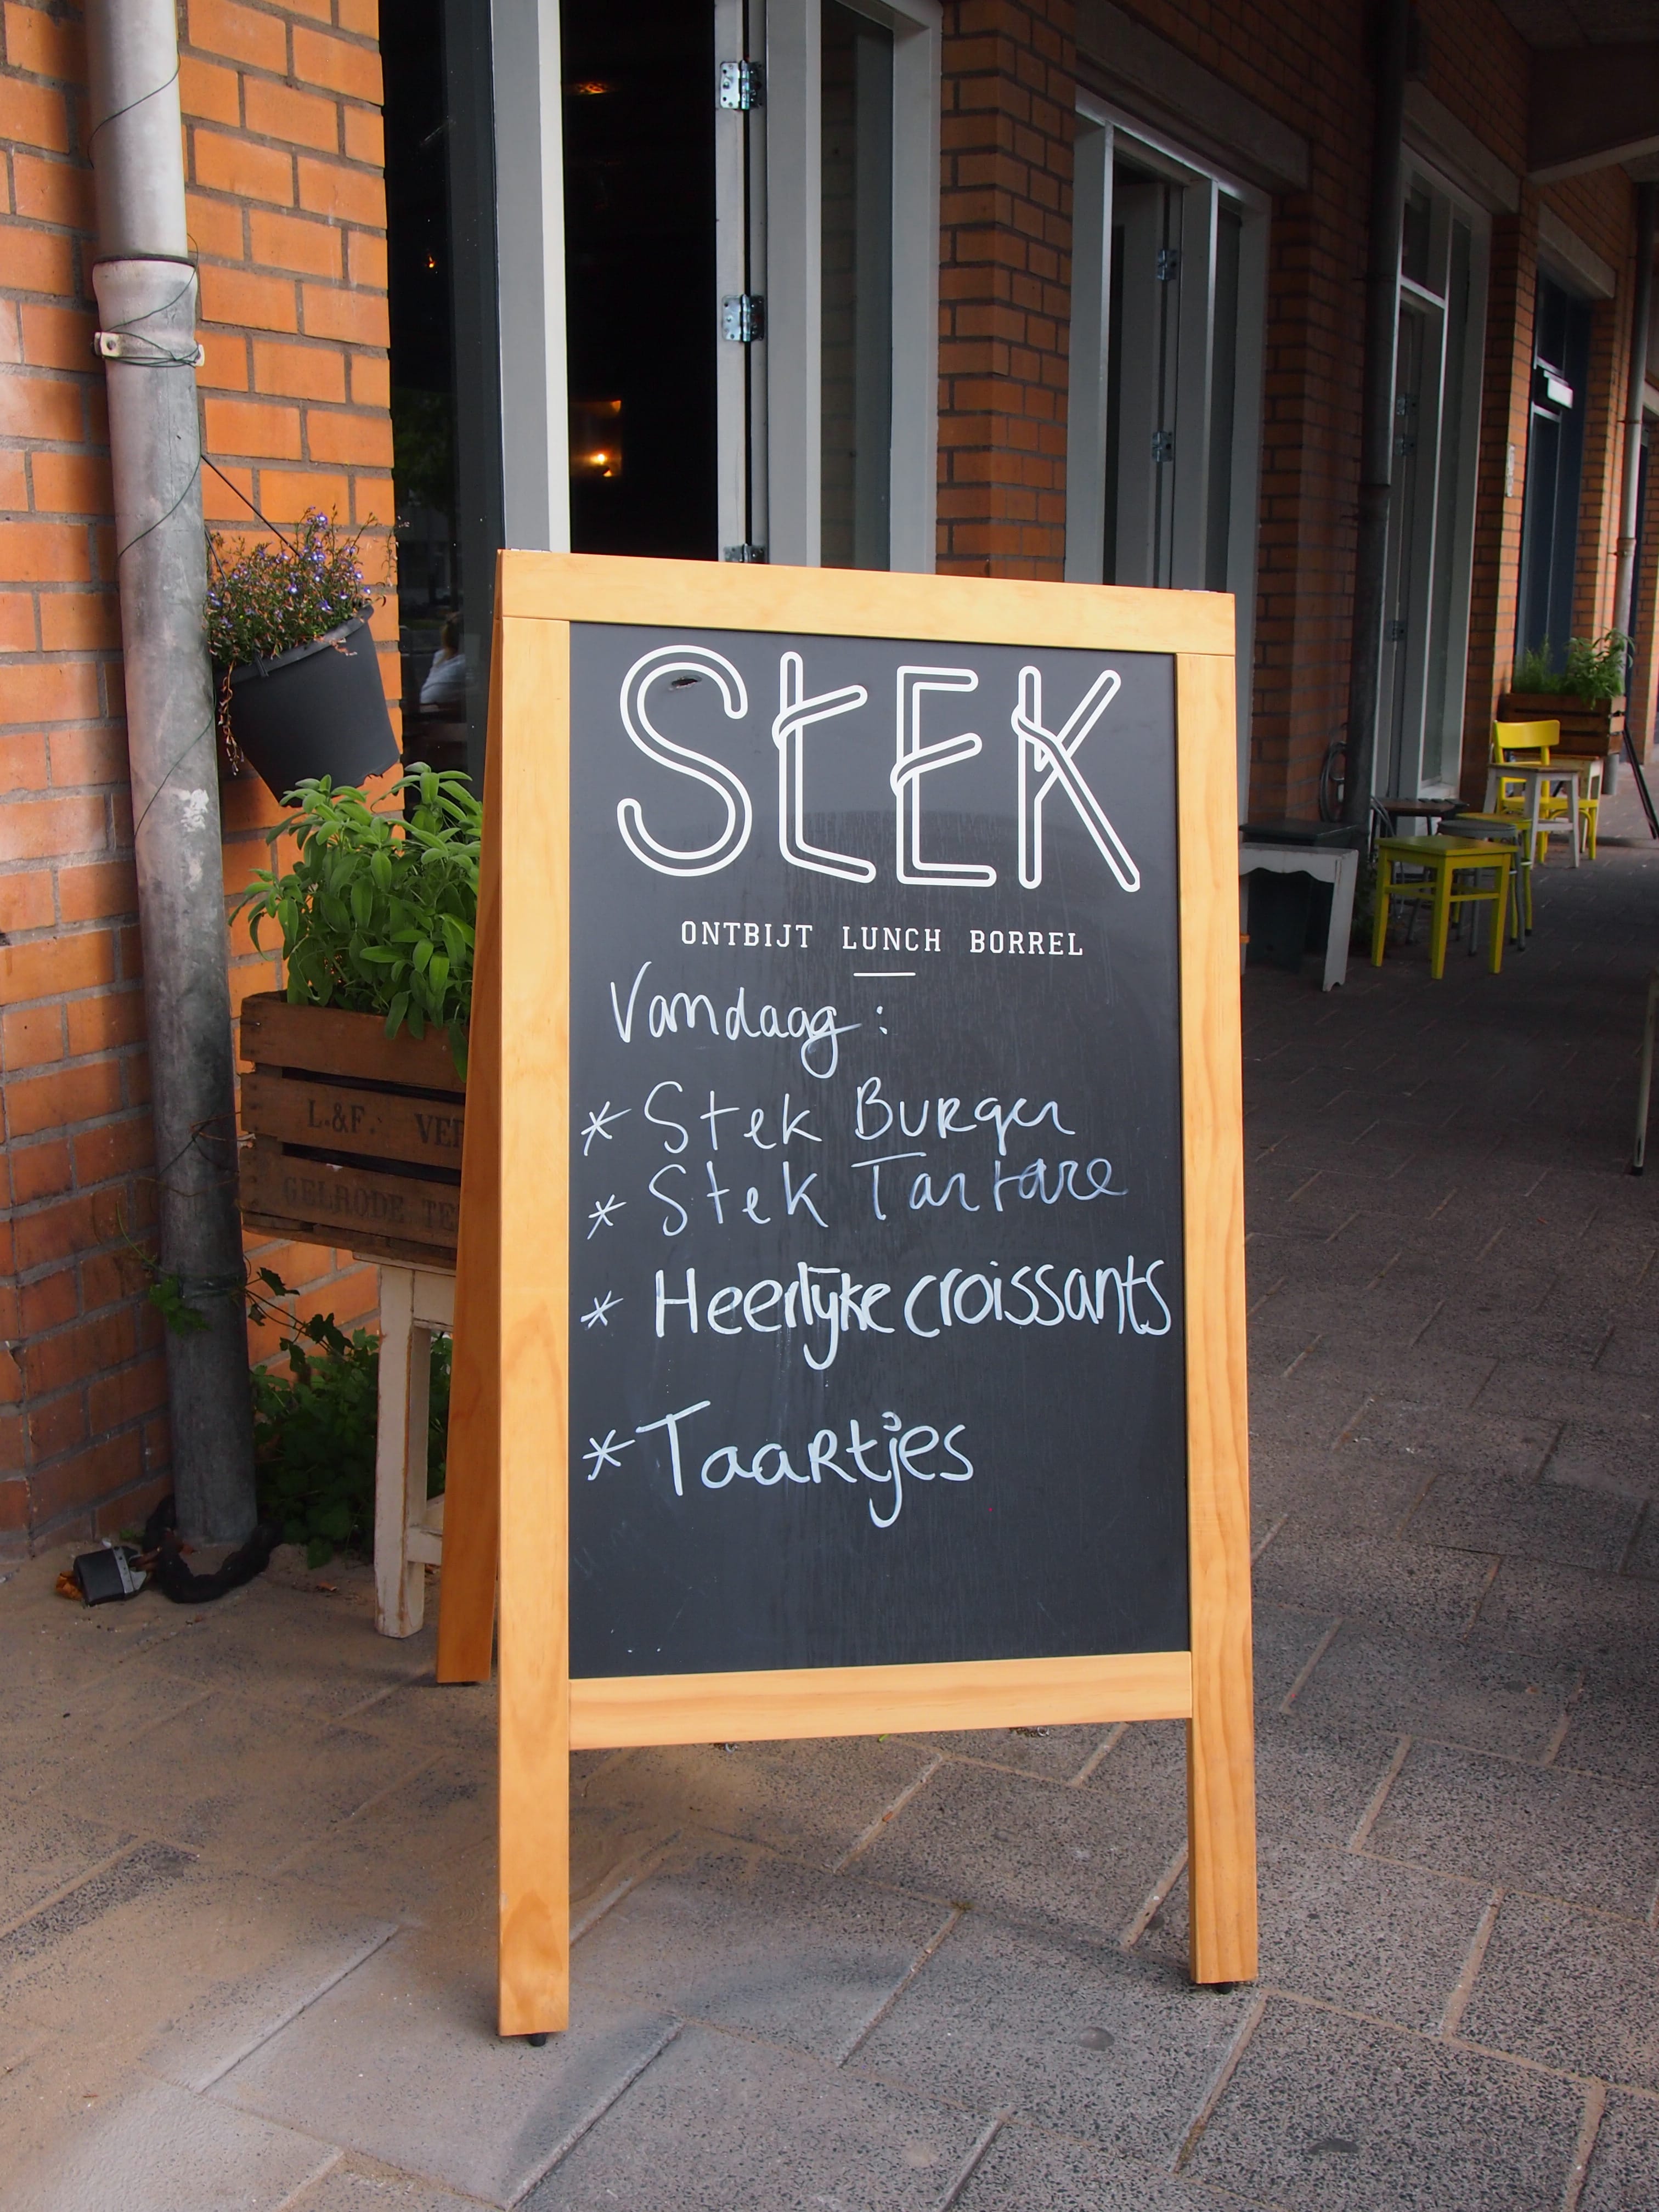 StEK
ONTBIJT LUNCH BORREL
Vandaag:
* Stek Burger
* Stek Tartare
* Heerlijke croissants
* Taartjes
L.&F. VER
GELRODE TE